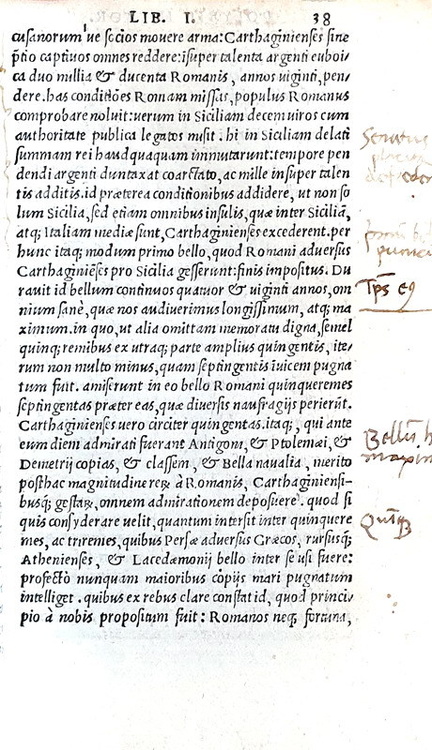 LIB. I. 38
cusanorum 've socios mouere arma: Carthaginienses sine
p̃tio captiuos omnes reddere: ĩsuper talenta argenti euboi-
ca duo millia & ducenta Romanis, annos uiginti, pen-
dere. has conditiões Romam missas, populus Romanus
comprobare noluit: uerum in Siciliam decem uiros cum
authoritate publica legatos misit. hi in Siciliam delati
summam rei haudquaquam immutarunt: tempore pen
dendi argenti duntaxat coarctato, ac mille insuper talen
tis additis. id præterea conditionibus addidere, ut non so
lum Sicilia, sed etiam omnibus insulis, quæ inter Siciliã,
atq; Italiam mediæ sunt, Carthaginienses excederent. per
hunc itaq; modum primo bello, quod Romani aduersus
Carthaginiẽses pro Sicilia gesserunt: finis impositus. Du
rauit id bellum continuos quatuor & uiginti annos, om
nium sanè, quæ nos audiuerimus longissimum, atq; ma
ximum. in quo, ut alia omittam memoratu digna, semel
quinq; remibus ex utraq; parte amplius quingentis, ite-
rum non multo minus, quam septingentis ĩuicem pugna
tum fuit. amiserunt in eo bello Romani quinqueremes
septingentas præter eas, quæ diuersis naufragijs perierũt.
Carthaginienses uero circiter quingentas. itaq;, qui ante
eum diem admirati fuerant Antigoni, & Ptolemæi, &
Demetrij copias, & classem, & Bella naualia, merito
posthac magnitudine reꝝ à Romanis, Carthaginiensi-
busq; gestaꝝ, omnem admirationem deposuere. quod si
quis consyderare uelit, quantum intersit inter quinquere
mes, ac triremes, quibus Persæ aduersus Græcos, rursusq;
Athenienses, & Lacedæmonij bello inter se usi fuere:
profectò nunquam maioribus copijs mari pugnatum
intelliget. quibus ex rebus clare constat id, quod princi-
pio à nobis propositum fuit: Romanos neq; fortuna,
Senatus
Tps
Bellũ
maxim
Quinq